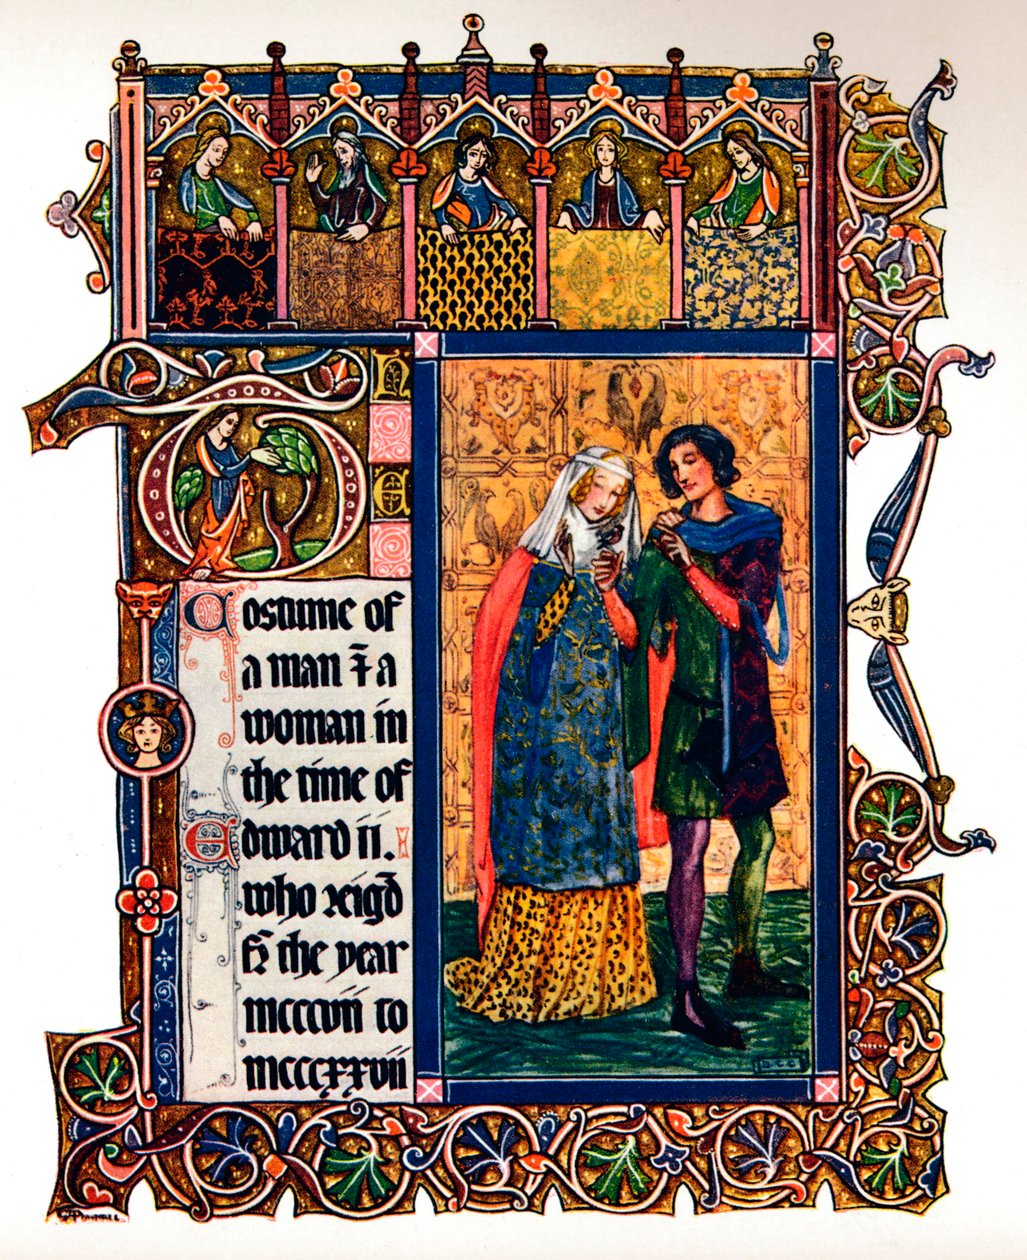 THE
Costume of
a man & a
woman in
the time of
Edward ii.
who reigd
fr the year
mcccvii to
mcccxxvii
DCC